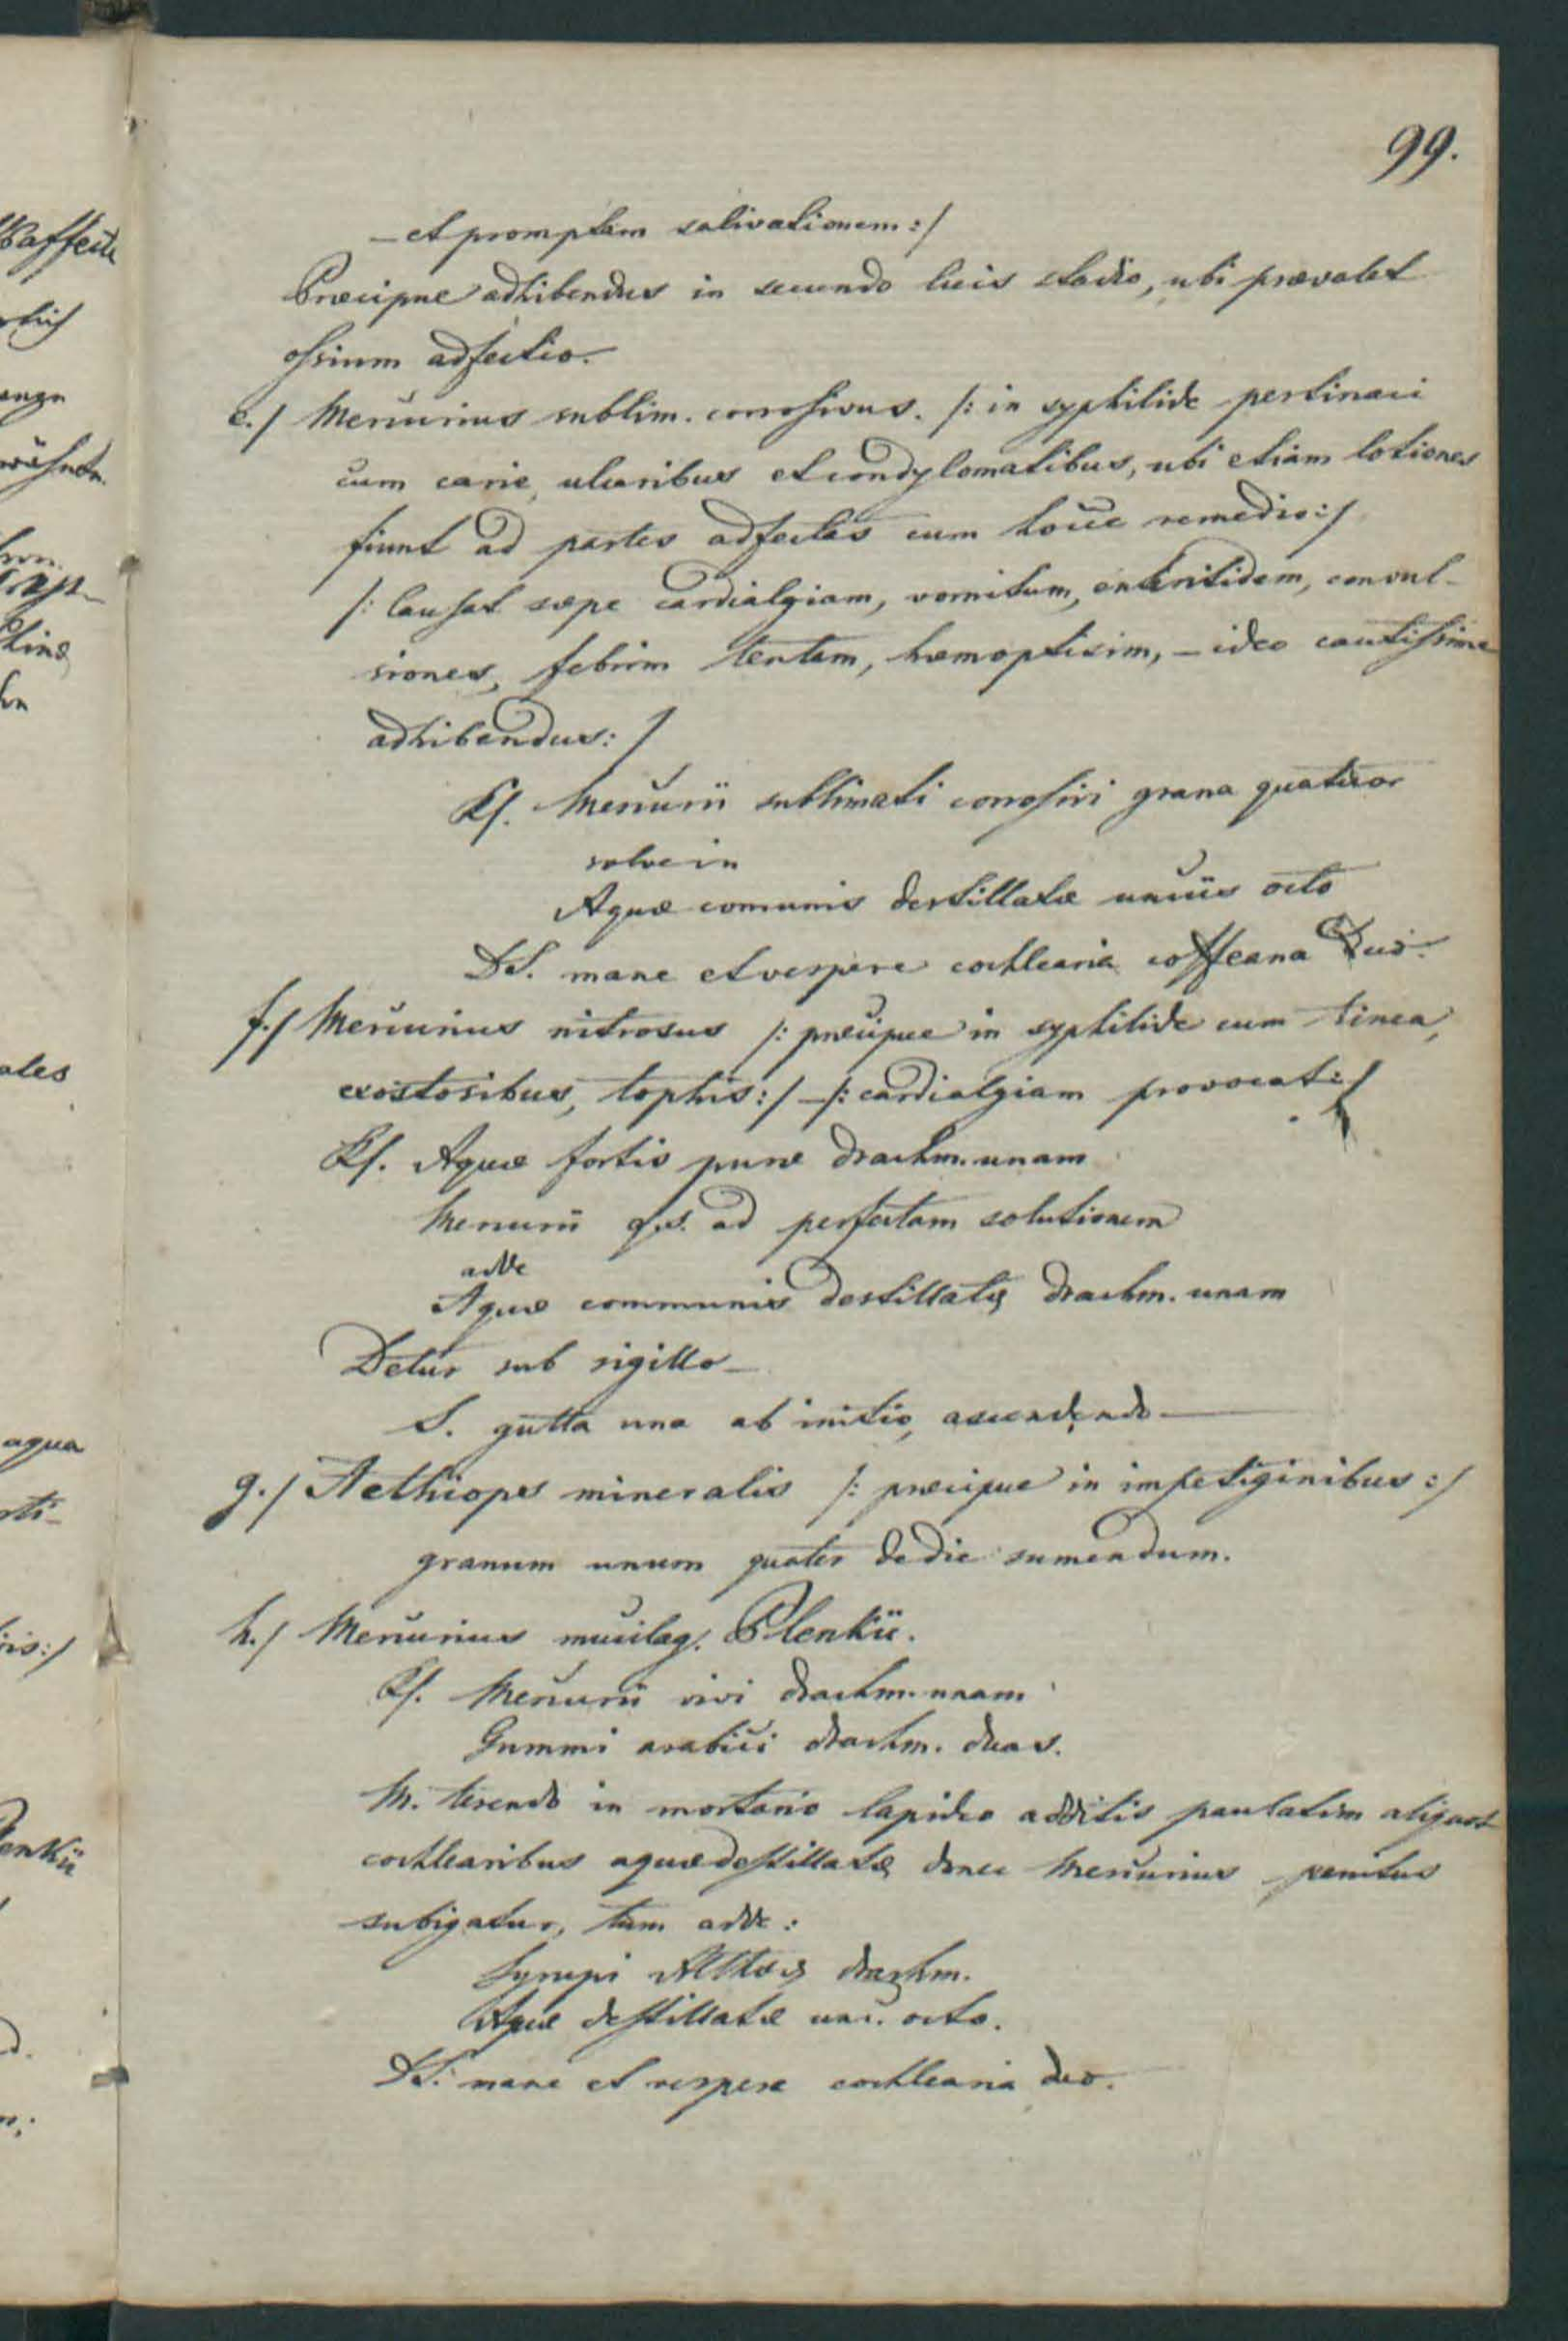 99.
– et promptam salivationem :/
Præcipue adhibendus in secundo luis stadio, ubi prævalet
ossium adfectio.
e./ Mercurius sublim. corrosivus. /: in syphilide pertinaci
cum carie, ulceribus et condylomatibus, ubi etiam lotiones
fiunt ad partes adfectas cum hocce remedio :/
/: Causat sæpe cardialgiam, vomitum, enteritidem, convul-
siones, febrim lentam, hæmoptisim, – ideo cautissime
adhibendus: /
Rf. Mercurii sublimati corrosivi grana quatuor
solve in
Aquæ comunis destillatæ unciis octo
DS. mane et vespere cochlearia coffeana duo.
f./ Mercurius nitrosus /: præcipue in syphilide cum tinea,
exostosibus, tophis :/ – /: cardialgiam provocat :/
Rf. Aquæ fortis puræ drachm. unam
Mercurii q.s. ad perfectam solutionem
adde
Aquæ communis destillatę drachm. unam
Detur sub sigillo –
S. gutta una ab initio, ascendendo —
g./ Aethiops mineralis /: præcipue in impetiginibus :/
granum unum quater de die sumendum.
h./ Mercurius mucilag. Plenkii.
Rf. Mercurii vivi drachm. unam
Gummi arabici drachm. duas.
M. terendo in mortario lapideo additis paulatim aliquot
cochlearibus aquæ destillatę donec Mercurius penitus
subigatur, tum adde :
Syrupi drachm.
Aquæ destillatæ unc. octo.
DS. mane et vespere cochlearia duo.
agua
ales